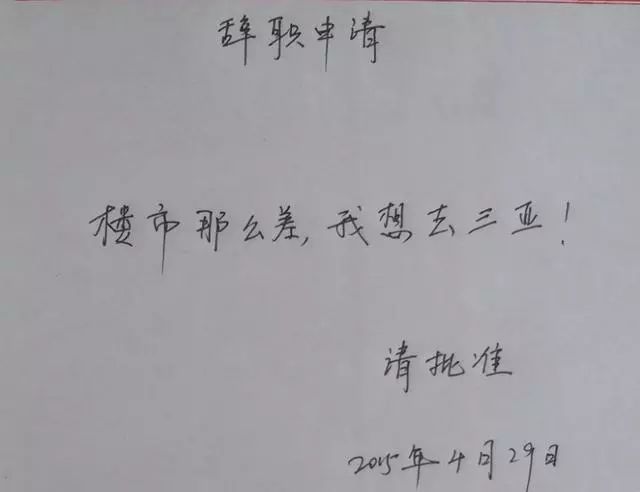 辞职申请
楼市那么差,我想去三亚!
请批准
2015年4月29日